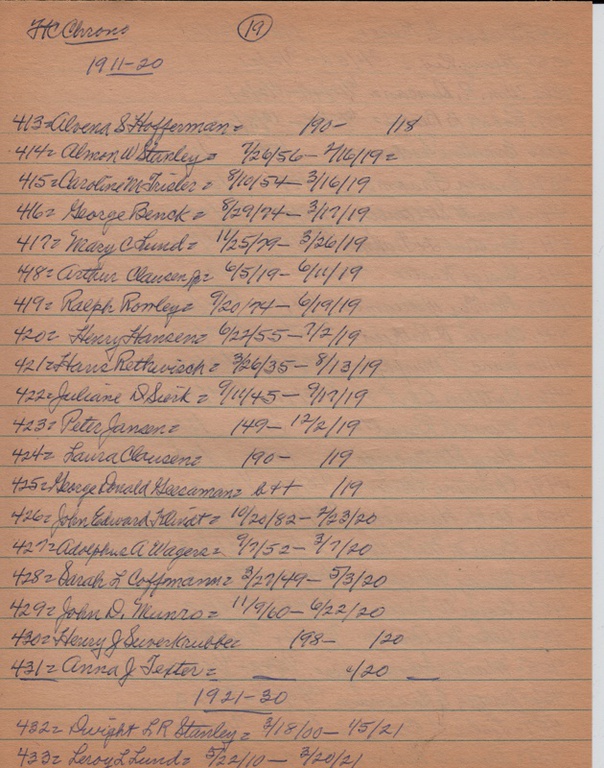 HC Chrono 19
1911-20
413= Alvena S Hofferman = 190- /18
414= Almon W Stanley = 7/26/56- 2/16/19=
415= Caroline M Trisler = 8/10/54- 3/16/19
416= George Benck = 8/29/74- 3/17/19
417= Mary C Lund = 11/25/79- 3/26/19
418= Arthur Clausen Jr = 6/5/19- 6/11/19
419= Ralph Romley = 9/20/74- 6/19/19
420= Henry Hansen = 6/22/55- 7/2/19
421= Hans Rethwisch = 3/26/35- 8/13/19
422= Juliane D Sierk = 9/11/45- 9/17/19
423= Peter Jansen = 149- 12/2/19
424= Laura Clausen = 190- /19
425= George Donald Geesaman = /19
426= John Edward Flindt = 10/20/82- 2/23/20
427= Adolphus A Wagers = 9/7/52- 3/7/20
428= Sarah L Coffman = 3/27/49- 5/3/20
429= John D. Munro = 11/9/60- 6/22/20
430= Henry J Suverkrubbe 198- /20
431= Anna J Texter = /20
1921-30
432= Dwight L R Stanley = 3/18/00- 1/5/21
433= Leroy L Lund = 5/22/10- 3/20/21